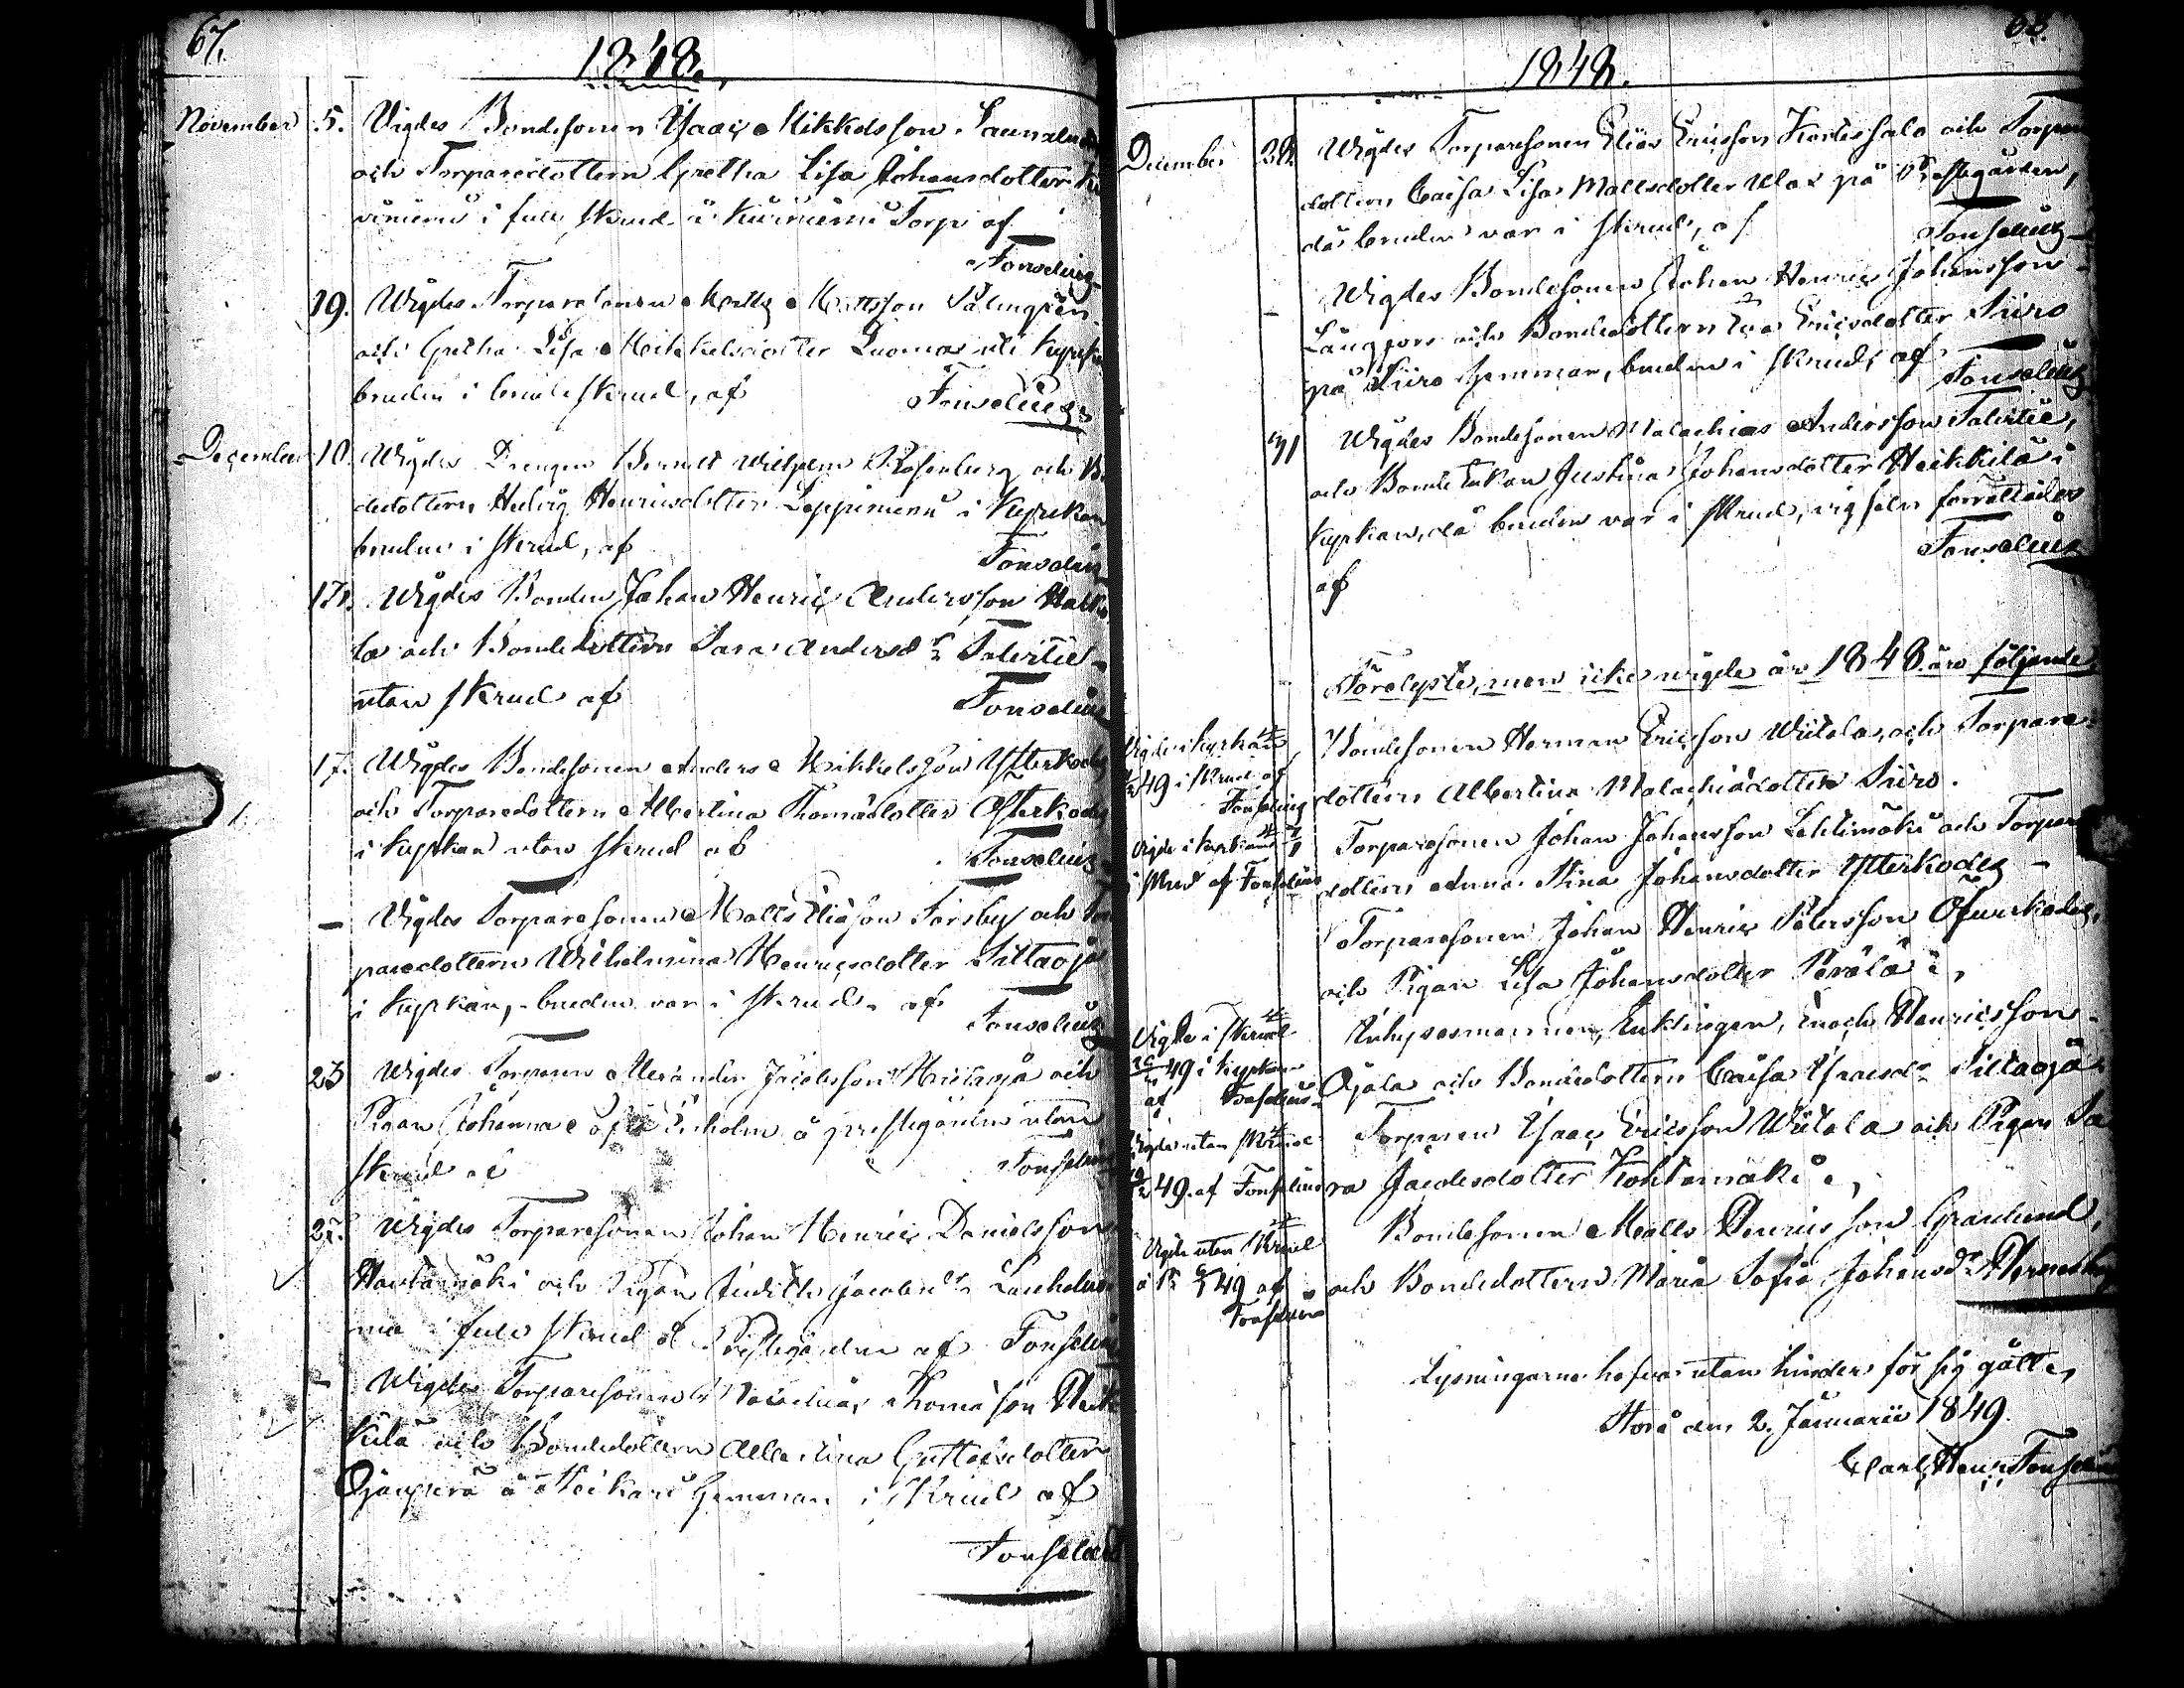 67.
1848.
November 5. Vigdes Bondesonen Isaac Mikkelsson
och Torparedottern Gretha Lisa Johansdotter
i full skrud å Torp af
Fonselius
19. Wigdes Torparesonen Matts Mattsson Palmgren
och Gretha Lisa Mikkelsdotter Luoma uti Kyrkan
bruden i brudeskrud, af Fonselius
December 10. Wigdes Drengen Berndt Wilhelm Rosenberg och
dedottern Hedvig Henricsdotter Leppiniemi i Kyrkan
bruden i skrud, af Fonselius
17. Wigdes Bonden Johan Henric Andersson
la och Bondedottern Sara Andersdr Talvitie
utan skrud af Fonselius
17. Wigdes Bondesonen Anders Mikkelsson Ytterkods
och Torparedottern Albertina Thomasdotter
i Kyrkan utan skrud af Fonselius
— Vigdes Torparesonen Matts Eliason Forsby och
paredottern Wilhelmina Henricsdotter Sillaojä
i Kyrkan, bruden var i skrud af
Fonselius
23 Wigdes Torparen Alexander Jacobsson och
Pigan Johanna å prestegården utan
skrud af Fonselius
27. Wigdes Torparesonen Johan Henric Danielsson
Hautamäki och Pigan Judith Jacobsdr
i full skrud å Prestegården af Fonselius
— Wigdes Torparesonen Thomasson Heik
kilä och Bondedottern Albertina Gustafsdotter
Ojanperä å Hemman i skrud af
Fonselius
68.
1848.
December 28. Wigdes Torparesonen Elias Ericsson Kortessalo och Torpare
dottern Caisa Lisa Mattsdotter på Prestegården,
då bruden var i skrud, af Fonselius
— Wigdes Bondesonen Johan Henric Johansson
Långfors och Bondedottern Eva Ericsdotter Siiro
på Siiro Hemman, bruden i skrud, af Fonselius
31 Wigdes Bondesonen Malachias Andersson Talvitie,
och Bonde Enkan Justina Johansdotter Heikkilä i
Kyrkan, då bruden var i skrud, vigseln förrättades
af Fonselius
Förelyste, men icke wigde år 1848 äro följande
Vigde i kyrkan
49 i skrud af
Fonselius
Bondesonen Herman Ericsson Wiitala, och Torpare
dottern Albertina Malachiasdotter Siiro.
Vigde i kyrkan
i skrud af Fonselius
Torparesonen Johan Johansson Lehtimäki och Torpare
dottern Anna Stina Johansdotter Ytterkods —
Torparesonen Johan Henric Petersson Öfverkods,
och Pigan Lisa Johansdotter Perälä,
Vigde i skrud
49 i kyrkan
af Fonselius
Enklingen, Enoch Henricsson
Ojala och Bondedottern Caisa Isacsdr Sillaojä
Vigde utan skrud
49. af Fonselius
Torparen Isaac Ericsson Wiitala och Pigan Sa
ra Jacobsdotter Kohtamäki,
Vigde utan skrud
49 af
Fonselius
Bondesonen Matts Henricsson Granlund,
och Bondedottern Maria Sofia Johansdr
Lysningarna hafva utan hinder för sig gått,
Storå den 2. Januarii 1849.
Carl Henr. Fonselius